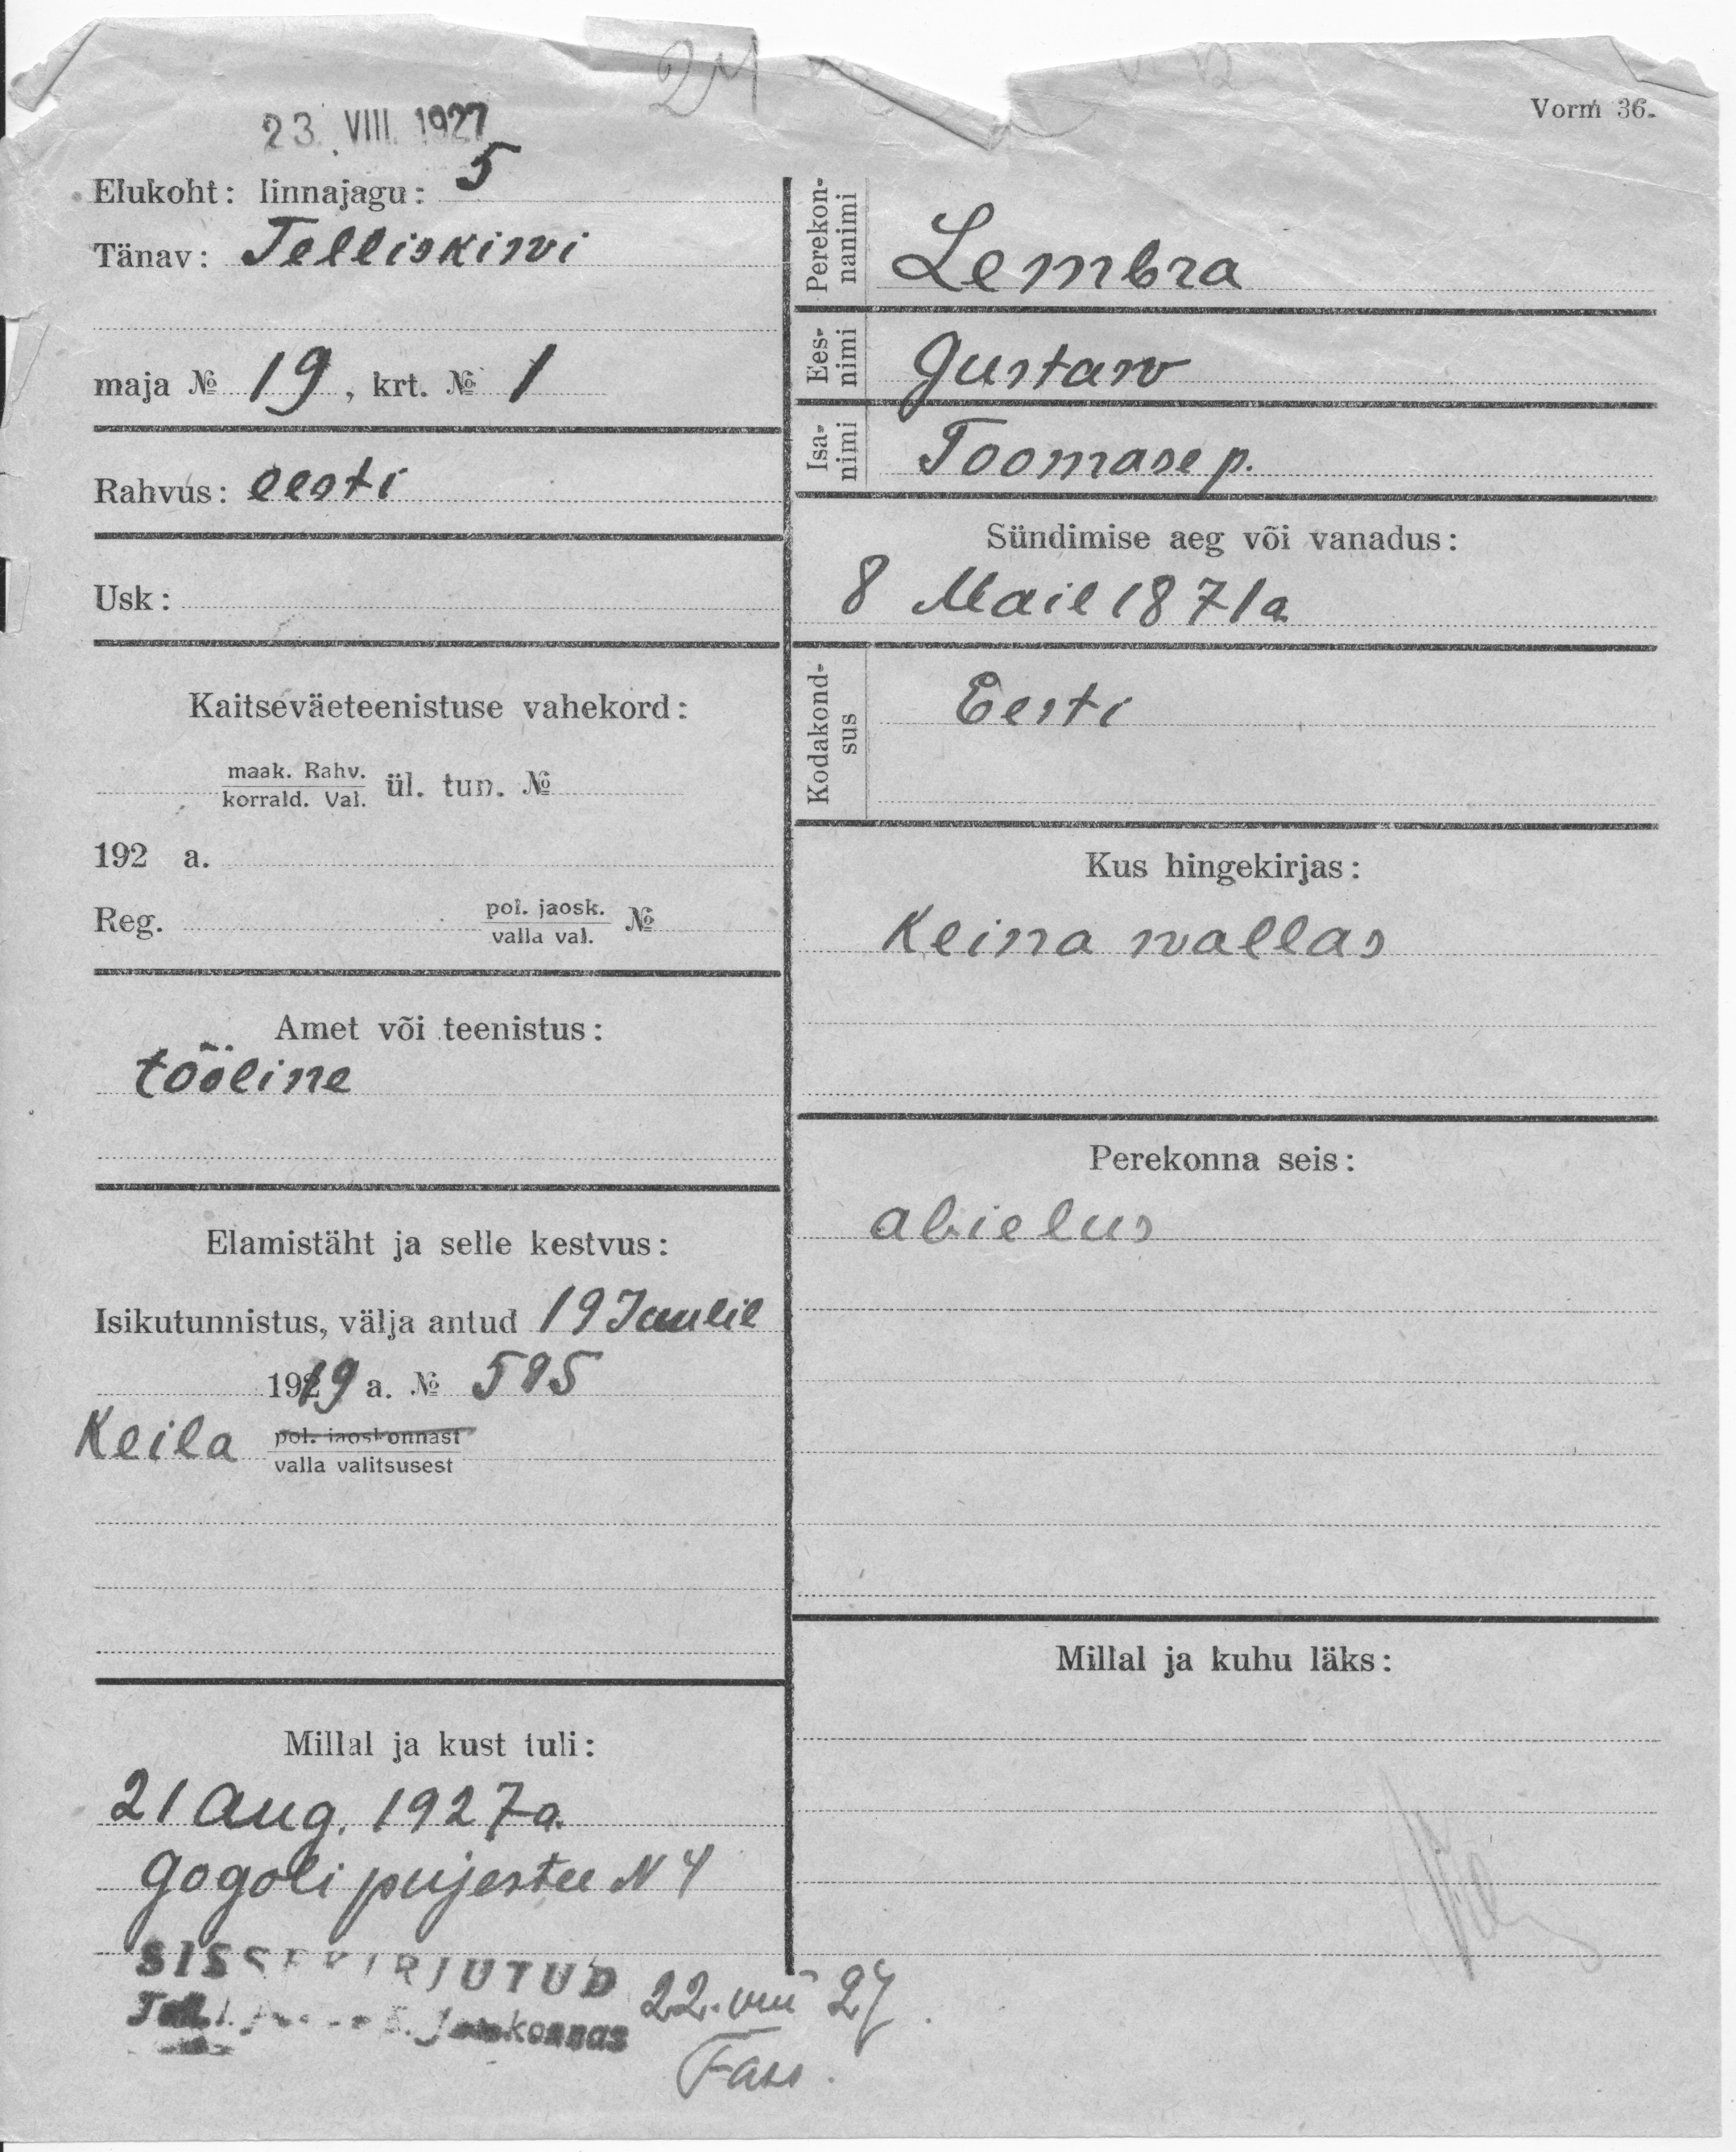 24
23. VIII. 1927
Vorm 36.
Elukoht: linnajagu: 5
Tänav: Telliskiwi
maja № 19, krt. № 1
Rahvus: eesti
Usk:
Kaitseväeteenistuse vahekord:
maak. Rahv.
korrald. Val. ül. tun. №
192 a.
Reg. pol. jaosk. №
valla val.
Amet või teenistus:
tööline
Elamistäht ja selle kestvus:
Isikutunnistus, välja antud 19 Juulil
1919 a. № 595
Keila pol. jaoskonnast
valla valitsusest
Millal ja kust tuli:
21 Aug. 1927 a.
Gogoli pujestee N 4
SISSEKIRJUTUD
Jaoskonnas
22. VIII 27
Perekon-
nanimi Lembra
Ees-
nimi Gustaw
Isa-
nimi Toomase p.
Sündimise aeg või vanadus:
8 Mail 1871 a
Kodakond-
sus Eesti
Kus hingekirjas:
Keina wallas
Perekonna seis:
abielus
Millal ja kuhu läks: